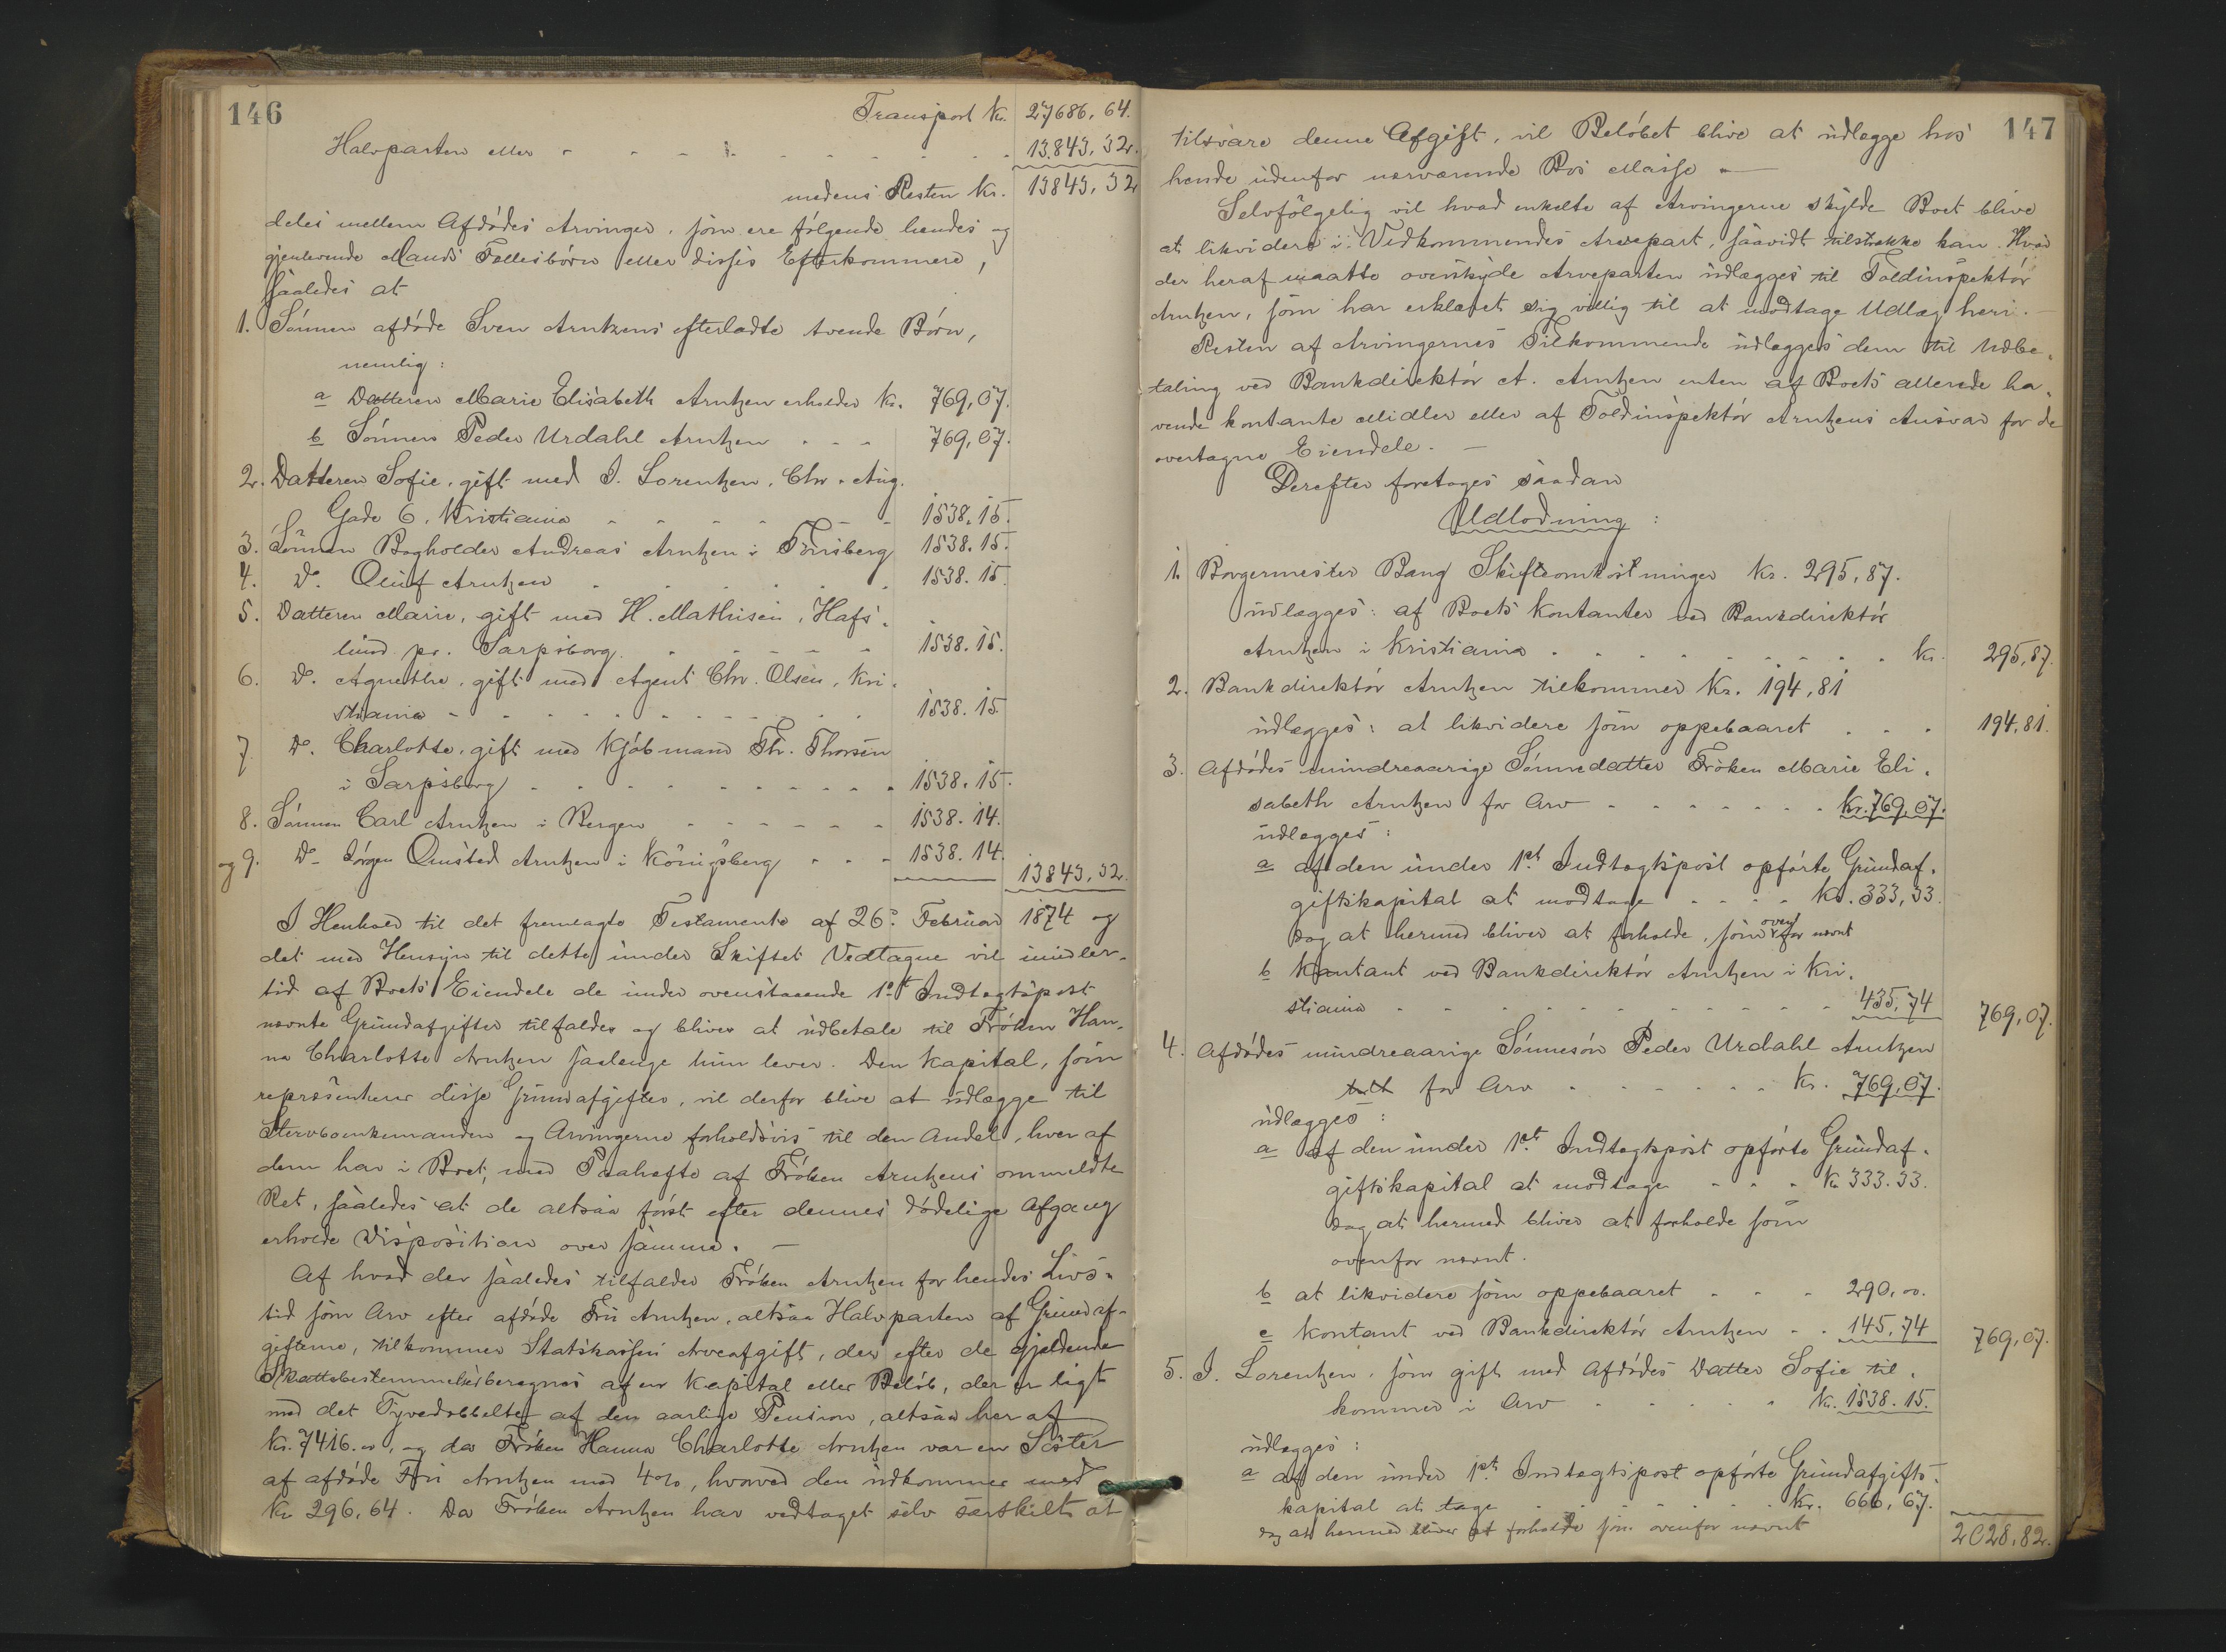 146
Transport Kr. 27686,64.
Halvparten eller - - - - - - - 13.843,32.
medens Resten Kr. 13843,32
deles mellem Afdødes Arvinger, som ere følgende hendes og
gjenlevende Mands Fællesbørn eller disses Efterkommere,
saaledes at
1. Sønnen afdøde Sven Arntzens efterladte tvende Børn,
nemlig:
a Datteren Marie Elisabeth Arntzen erholder Kr. 769,07.
b Sønnen Peder Urdahl Arntzen - - - 769,07.
2. Datteren Sofie, gift med I. Lorentzen, Chr. Aug.
Gade 6, Kristiania - - - - - - 1538,15.
3. Sønnen Bogholder Andreas Arntzen i Tønsberg 1538.15.
4. Do. Oluf Arntzen - - - - - - 1538.15.
5. Datteren Marie, gift med H. Mathisen, Hafs-
lund pr. Sarpsborg - - - - - 1538.15.
6. Do. Agnethe, gift med Agent Chr. Olsen, Kri-
stiania - - - - - - - - - - 1538.15.
7 Do. Charlotte, gift med Kjøbmand Th. Thorsen
i Sarpsborg - - - - - - - - - 1538.15.
8. Sønnen Carl Arntzen i Bergen - - - - - - 1538.14.
og 9. Do. Jørgen Qvisted Arntzen i Königsberg - - - 1538.14.
13843,32.
I Henhold til det fremlagte Testamente af 26de Februar 1874 og
det med Hensyn til dette under Skiftet Vedtagne vil imidler-
tid af Boets Eiendele de under ovenstaaende 1st Indtægtspost
nævnte Grundafgifter tilfalder og bliver at udbetale til Frøken Han-
na Charlotte Arntzen saalænge hun lever. Den Kapital, som
repræsenterer disse Grundafgifter, vil derfor blive at udlægge til
Stervboenkemanden og Arvingerne forholdsvis til den Andel, hver af
dem har i Boet, med Paahefte af Frøken Arntzens ommeldte
Ret, saaledes at de altsaa først efter dennes dødelige Afgang
erholde Disposition over samme. —
Af hvad der saaledes tilfalder Frøken Arntzen for hendes Livs-
tid som Arv efter afdøde Fru Arntzen, altsaa Halvparten af Grundaf-
gifterne, tilkommer Statskassen Arveafgift, der efter de gjældende
Skattebestemmelser beregnes af en Kapital eller Beløb, der er ligt
med det Tyvedobbelte af den aarlige Pension, altsaa her af
Kr. 7416.00, og da Frøken Hanna Charlotte Arntzen var en Søster
af afdøde Fru Arntzen med 4%, hvorved den udkommer med
Kr 296,64. Da Frøken Arntzen har vedtaget selv særskilt at
147
tilsvare denne Afgift, vil Beløbet blive at udlægge hos
hende udenfor nærværende Bos Masse —
Selvfølgelig vil hvad enkelte af Arvingerne skylde Boet blive
at likvidere i Vedkommendes Arvepart, saavidt tilstrække kan. Hvad
der heraf maatte overskyde Arveparten udlægges til Toldinspektør
Arntzen, som har erklæret sig villig til at modtage Udlæg heri. —
Resten af Arvingernes Tilkommende udlægges dem til Udbe-
taling ved Bankdirektør A. Arntzen enten af Boets allerede ha-
vende kontante Midler eller af Toldinspektør Arntzens Ansvar for de
overtagne Eiendele. —
Derefter foretoges saadan
Udlodning:
1. Borgermester Bang Skifteomkostninger Kr. 295,87.
udlægges: af Boets Kontanter ved Bankdirektør
Arntzen i Kristiania - - - - - - - - - Kr. 295,87.
2. Bankdirektør Arntzen tilkommer Kr. 194,81
udlægges: at likvidere som oppebaaret - - - 194,81.
3. Afdødes mindreaarige Sønnedatter Frøken Marie Eli-
sabeth Arntzen for Arv - - - - - - - Kr. 769,07.
udlægges:
a af den under 1st Indtægtspost opførte Grundaf-
giftskapital at modtage - - - - Kr. 333,33.
dog at hermed bliver at forholde, som ovenfor nævnt
b Kontant ved Bankdirektør Arntzen i Kri-
stiania - - - - - - - - - - - 435,74 769,07.
4. Afdødes mindreaarige Sønnesøn Peder Urdahl Arntzen
for Arv - - - - - - Kr. 769,07.
udlægges:
a af den under 1st Indtægtspost opførte Grundaf-
giftskapital at modtage - - - Kr 333.33.
dog at hermed bliver at forholde som
ovenfor nævnt.
b at likvidere som oppebaaret - - - 290,00.
c Kontant ved Bankdirektør Arntzen - - 145,74 769,07.
5. I. Lorentzen, som gift med Afdødes Datter Sofie til-
kommer i Arv - - - - - Kr. 1538.15.
udlægges:
a af den under 1st Indtægtspost opførte Grundafgifts-
kapital at tage - - - - - - - Kr. 666,67.
dog at hermed bliver at forholde som ovenfor nævnt
2028,82.